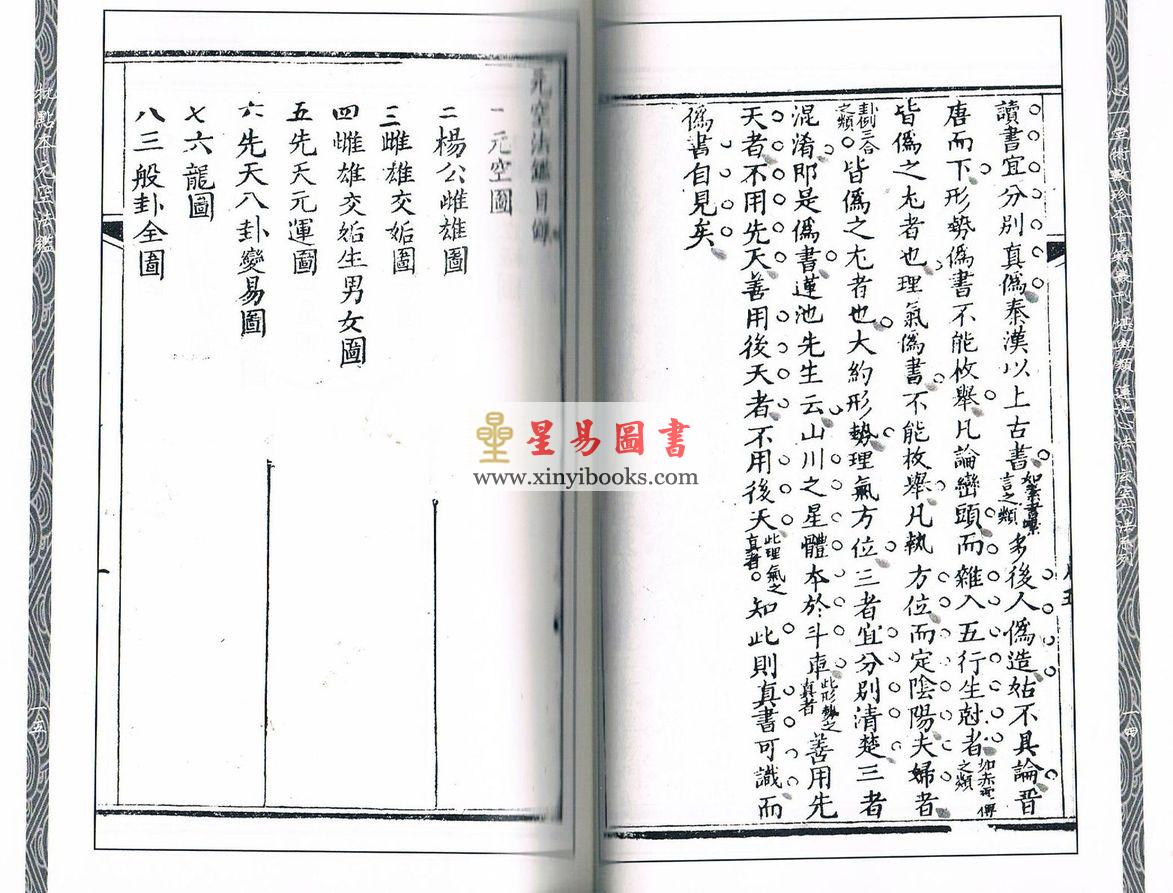 讀書宜分別真偽秦漢以上古書如素書噤言之類多後人偽造姑不具論晋
唐而下形勢偽書不能枚舉凡論巒頭而雜入五行生尅者如赤電傳之類
皆偽之尤者也理氣偽書不能枚舉凡執方位而定陰陽夫婦者
劃三合之類皆偽之尤者也大約形勢理氣方位三者宜分別清楚三者
混淆即是偽書蓮池先生云山川之星體本於斗車此形勢之真者善用先
天者不用先天善用後天者不用後天此理氣之真者知此則真書可識而
偽書自見矣
元空法鑑目錄
一元空圖
二楊公雌雄圖
三雌雄交姤圖
四雌雄交姤生男女圖
五先天元運圖
六先天八卦變易圖
七六龍圖
八三般卦全圖
批點本元空法鑑
一五
心一堂術數珍本古籍叢刊 堪輿類
一四
星易圖書
www.xinyibooks.com